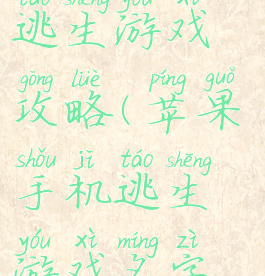 táo shēng yóu xì
逃生游戏
gōng lüè píng guǒ
攻略(苹果
shǒu jī táo shēng
手机逃生
yóu xì míng zì
游戏名字